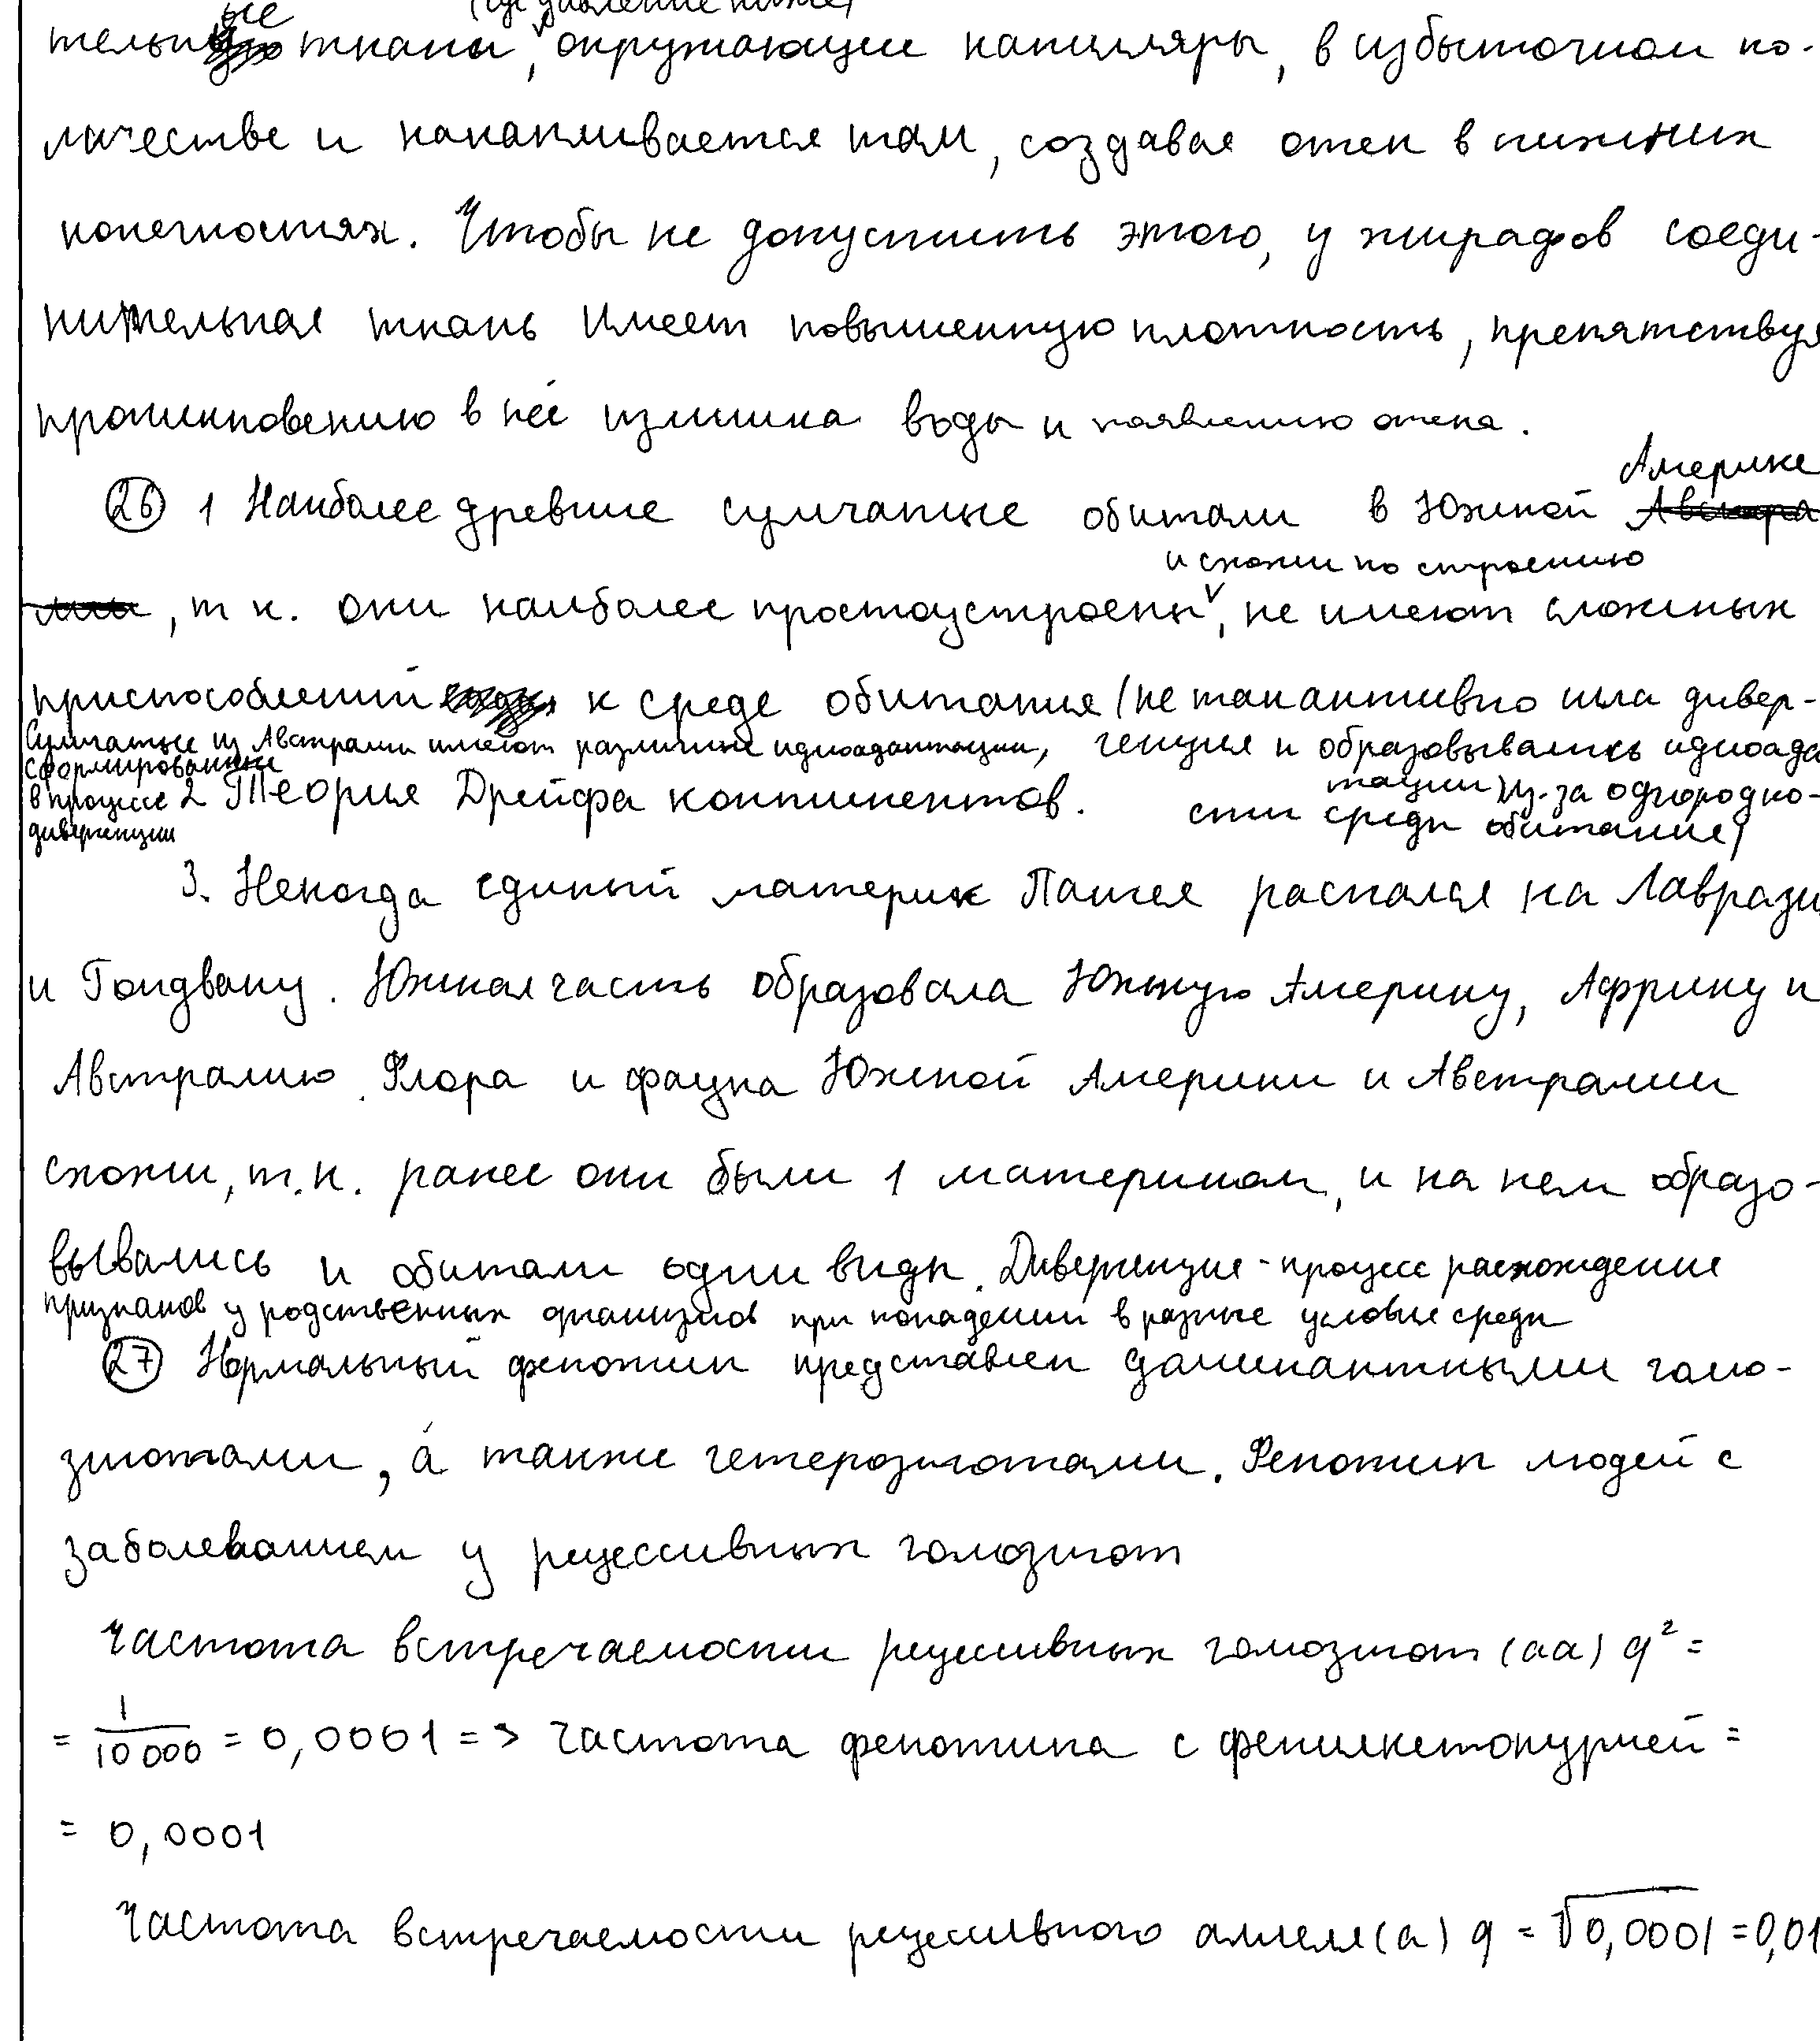 (где давление ниже)
тельные ткани, окружающие капилляры, в избыточном ко-
личестве и накапливается там, создавая отек в нижних
конечностях. Чтобы не допустить этого, у жирафов соеди-
нительная ткань имеет повышенную плотность, препятствуя
проникновению в неё излишка воды и появлению отека.
Америке
26 1 Наиболее древние сумчатые обитали в Южной
и схожи по строению
, т к. они наиболее простоустроены, не имеют сложных
приспособлений к среде обитания (не так активно шла дивер-
Сумчатые из Австралии имеют различные идиоадаптации, генция и образовывались идиоада
сформированные
тации) из-за однородно-
в процессе 2 Теория Дрейфа континентов. сти среды обитания)
дивергенции
3. Некогда единый материк Пангея распался на Лаврази
и Гондвану. Южная часть образовала Южную Америку, Африку и
Австралию. Флора и фауна Южной Америки и Австралии
схожи, т.к. ранее они были 1 материком, и на нем образо-
вывались и обитали одни виды. Дивергенция - процесс расхождения
признаков у родственных организмов при попадении в разные условие среды
27 Нормальный фенотип представлен доминантными гомо-
зиготами, а также гетерозиготами. Фенотип людей с
заболеванием у рецессивных гомозигот
Частота встречаемости рецессивных гомозигот (аа) q² =
= 1/10 000 = 0,0001 => частота фенотипа с фенилкетонурией =
= 0,0001
Частота встречаемости рецессивного аллеля (а) q = √0,0001 = 0,01